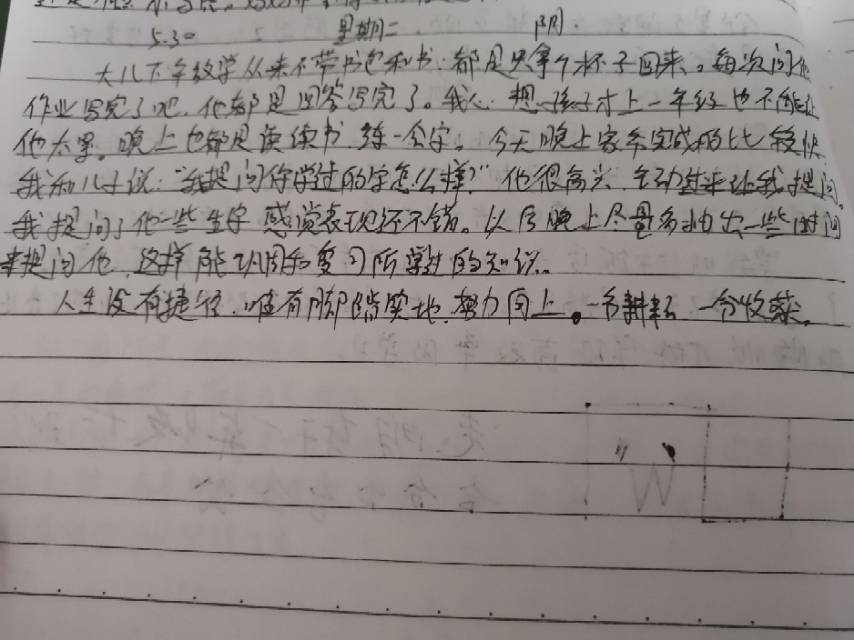 5.30 星期二 阴
大儿下午放学从来不带书包和书,都是只拿个杯子回来。每次问他
作业写完了吧,他都是回答写完了。我心想孩子才上一年级也不能让
他太累。晚上也都是读读书 练一会字。今天晚上家务完成的比较快
我和儿子说:“我提问你学过的字怎么样?”他很高兴 主动过来让我提问。
我提问了他一些生字 感觉表现还不错。以后晚上尽量多抽出一些时间
来提问他,这样能巩固和复习所学过的知识。
人生没有捷径,唯有脚踏实地,努力向上。一份耕耘 一份收获。